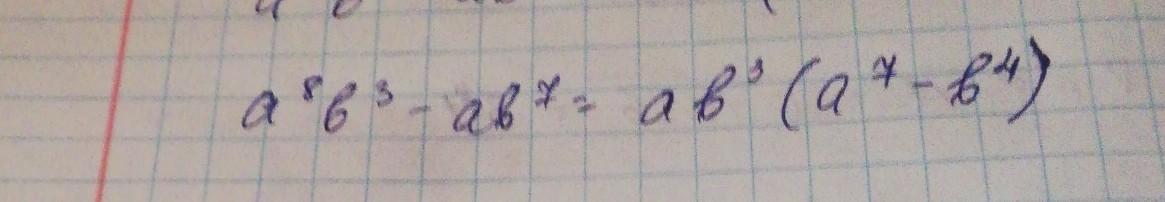 a⁸b³ - ab⁷ = ab³(a⁷ - b⁴)